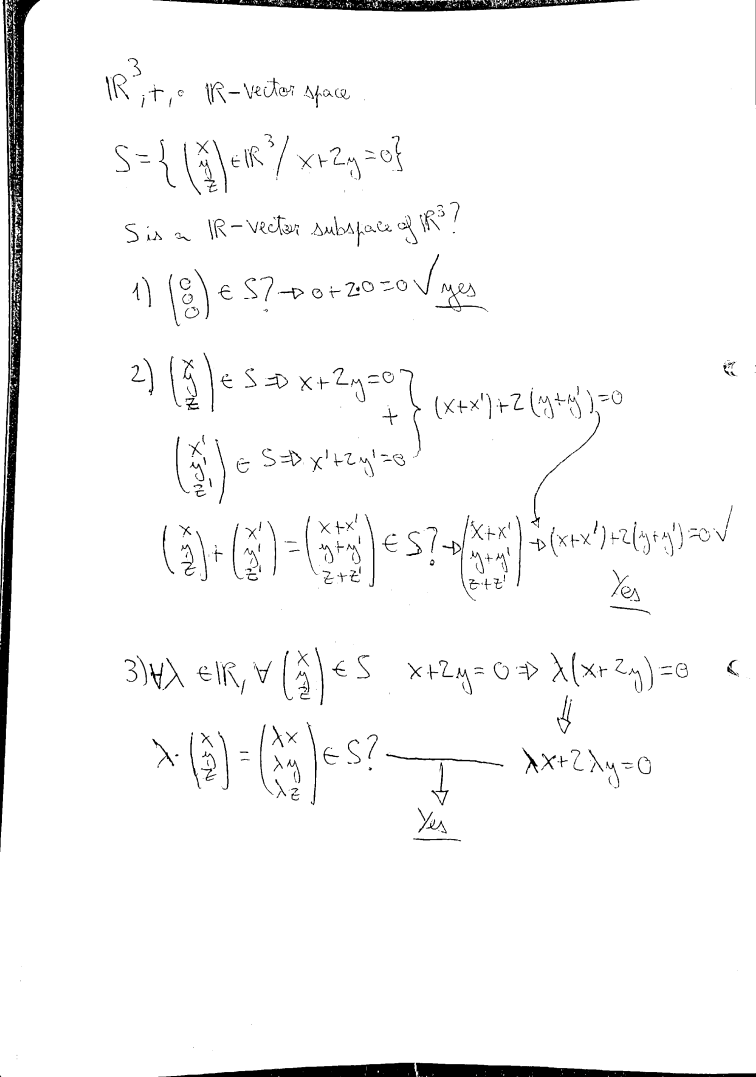 ℝ³,+,∘ ℝ-vector space.
S={(x y z)∈ℝ³/ x+2y=0}
S is a ℝ-vector subspace of ℝ³?
1) (0 0 0) ∈ S? → 0+2·0=0 √ yes
2) (x y z) ∈ S ⇒ x+2y=0
+ } (x+x')+2(y+y')=0
(x' y' z') ∈ S ⇒ x'+2y'=0
(x y z)+(x' y' z')=(x+x' y+y' z+z') ∈ S? → (x+x' y+y' z+z') → (x+x')+2(y+y')=0 √
Yes
3) ∀λ ∈ℝ, ∀ (x y z) ∈ S x+2y=0 ⇒ λ(x+2y)=0
⇓
λ·(x y z)=(λx λy λz) ∈ S? λx+2λy=0
↓
Yes